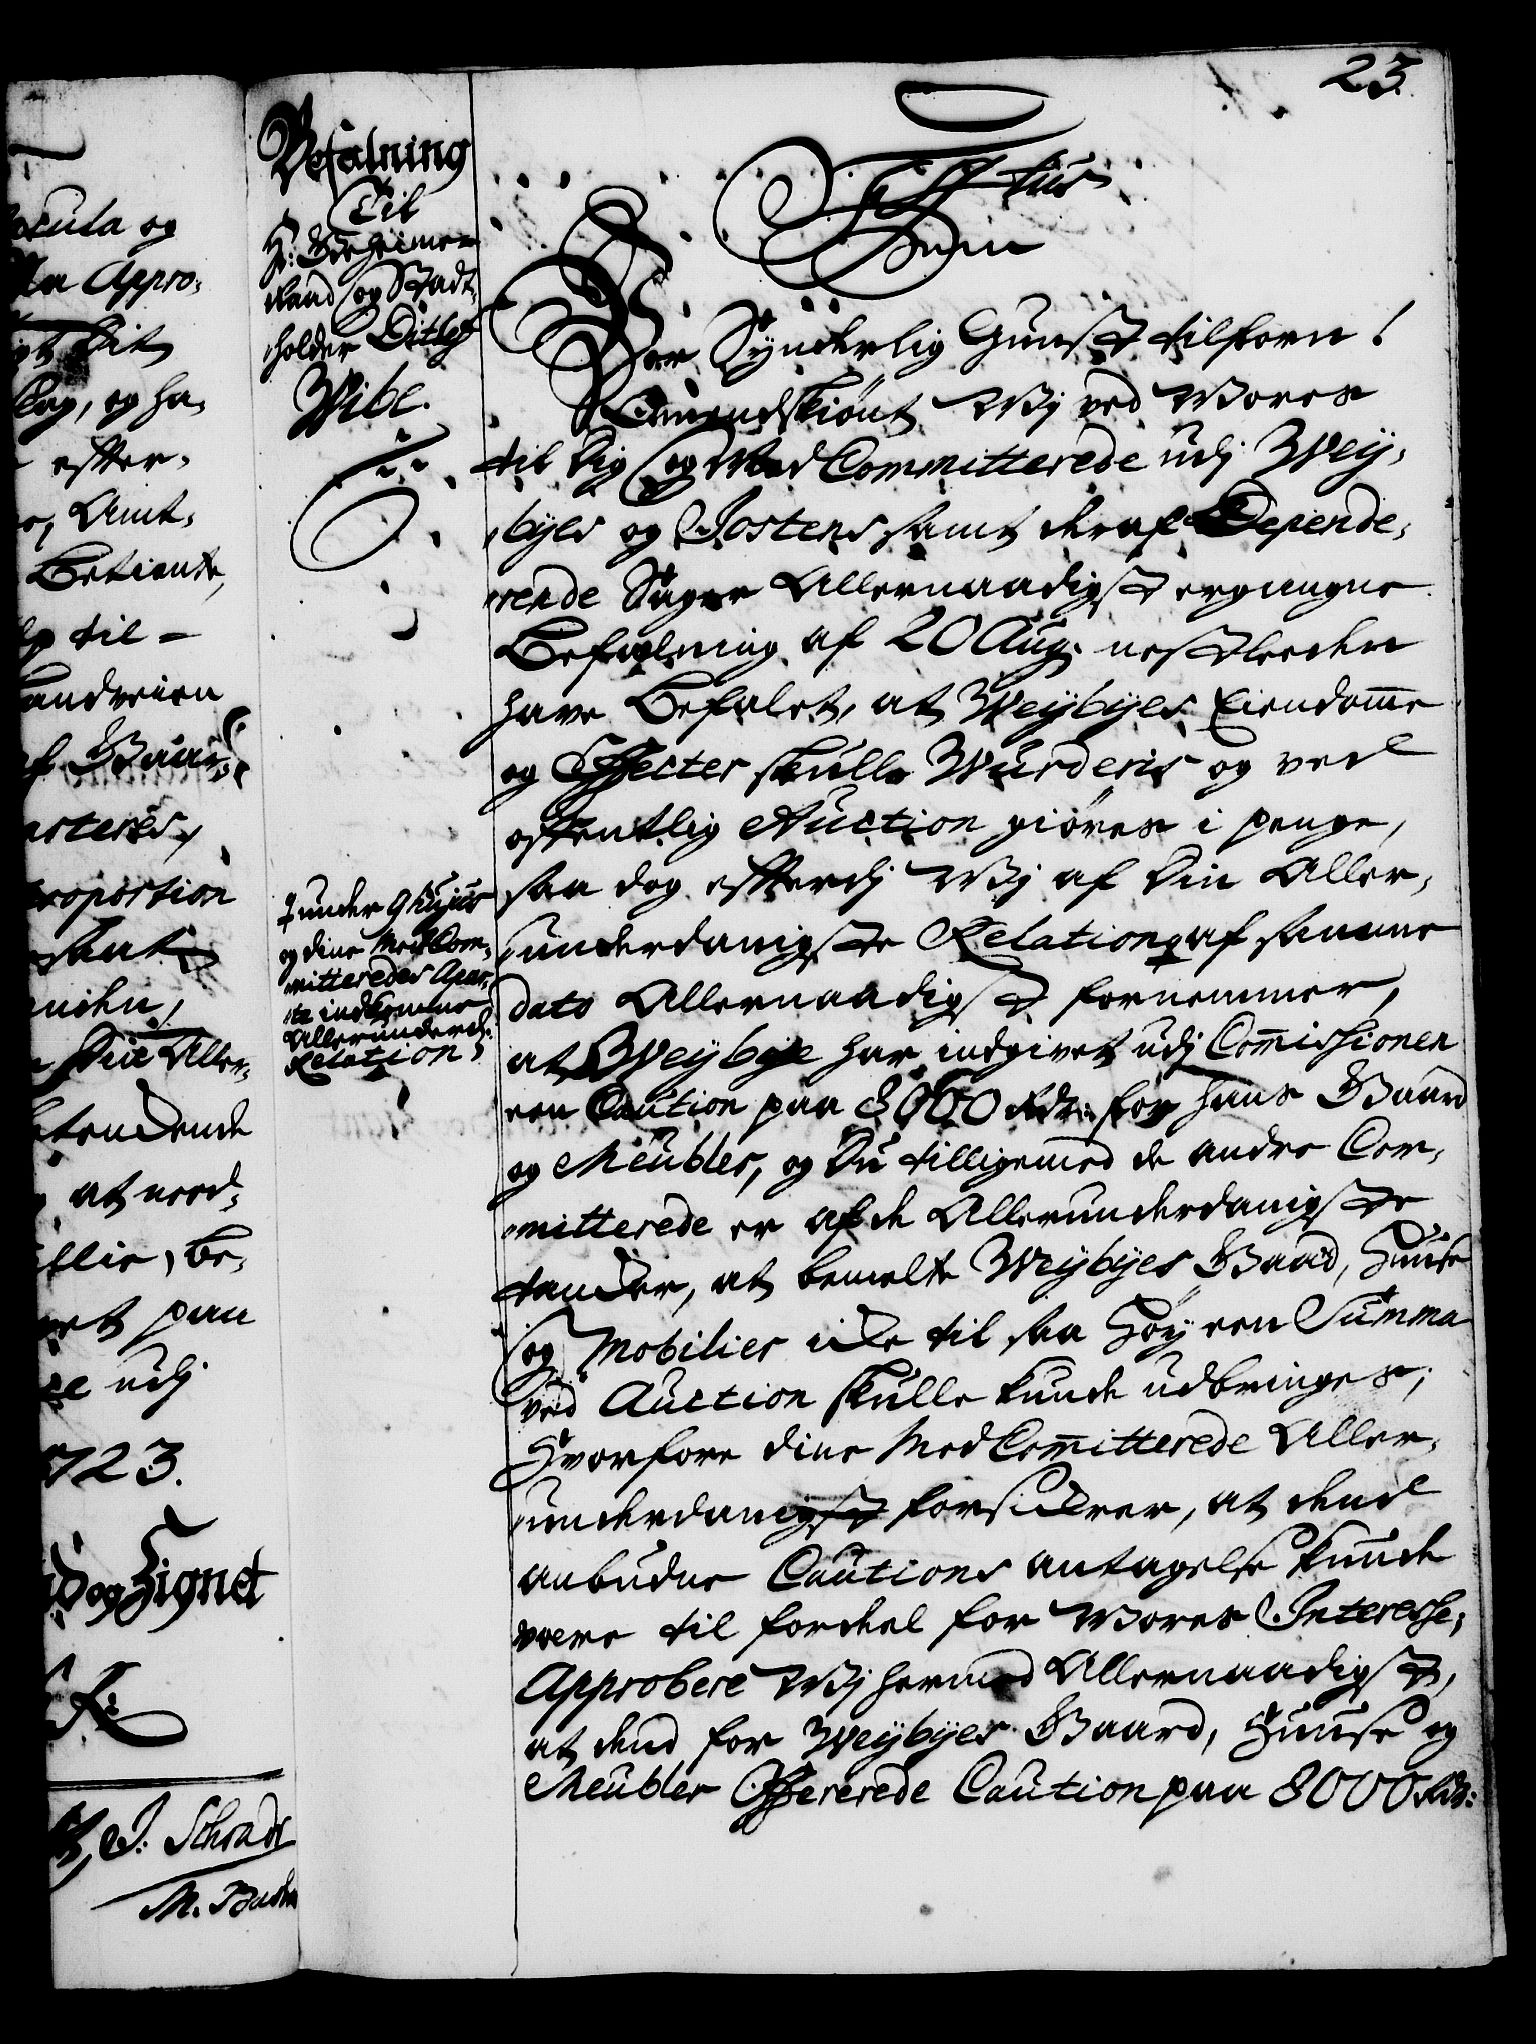 23.
Befalning
Til
Hr: Geheime-
Raad og Stadt-
holder Ditlef
Wibe.
Vor Synderlig Gunst tilforn!
Eenendskiønt Wij ved Vores
til Dig og Med Committerede udj Weÿ-
bÿes og Jostens samt deraf Depende-
rende Sager Allernaadigst ergangne
Befalning af 20 Aug: nestleeden
have Befalet, at Weÿbÿes Eiendomme
og Effecter skulle Wurderis og ved
offentlig Auction giøres i penge,
saa dog efterdj Wij af Din Aller-
underdanigste Relation af samme
dato Allernaadigst fornemmer,
at Weÿbÿe har indgivet udj Commissionen
een Caution paa 8000 Rdr: for hans Gaard
og Meubler, og Du tilligemed de andre Com-
mitterede er af de Allerunderdanigste
tancker, at bemelte Weÿbÿes Gaard, Huuse
og Mobilier icke til saa Høÿ een Summa
ved Auction skulle kunde udbringes;
Hvorfore dine Med Committerede Aller-
underdanigst forsickrer, at dend
anbudne Cautions antagelse kunde
være til fordeel for Vores Interesse;
Approbere Wij hermed Allernaadigst,
at dend for Weÿbÿes Gaard, Huuse og
Meubler Offererede Caution paa 8000 Rdr:
under 9 hujus
og dine Med Com-
mitteredes Apar-
te indkomne
Allerunderd:
Relation
og
Appro-
Dit
og ha-
efter-
Amt-
Betiente,
til-
Gaar-
proportion
Aller-
at nerd-
be-
paa
udj
1723.
og Signet
J: Schrader